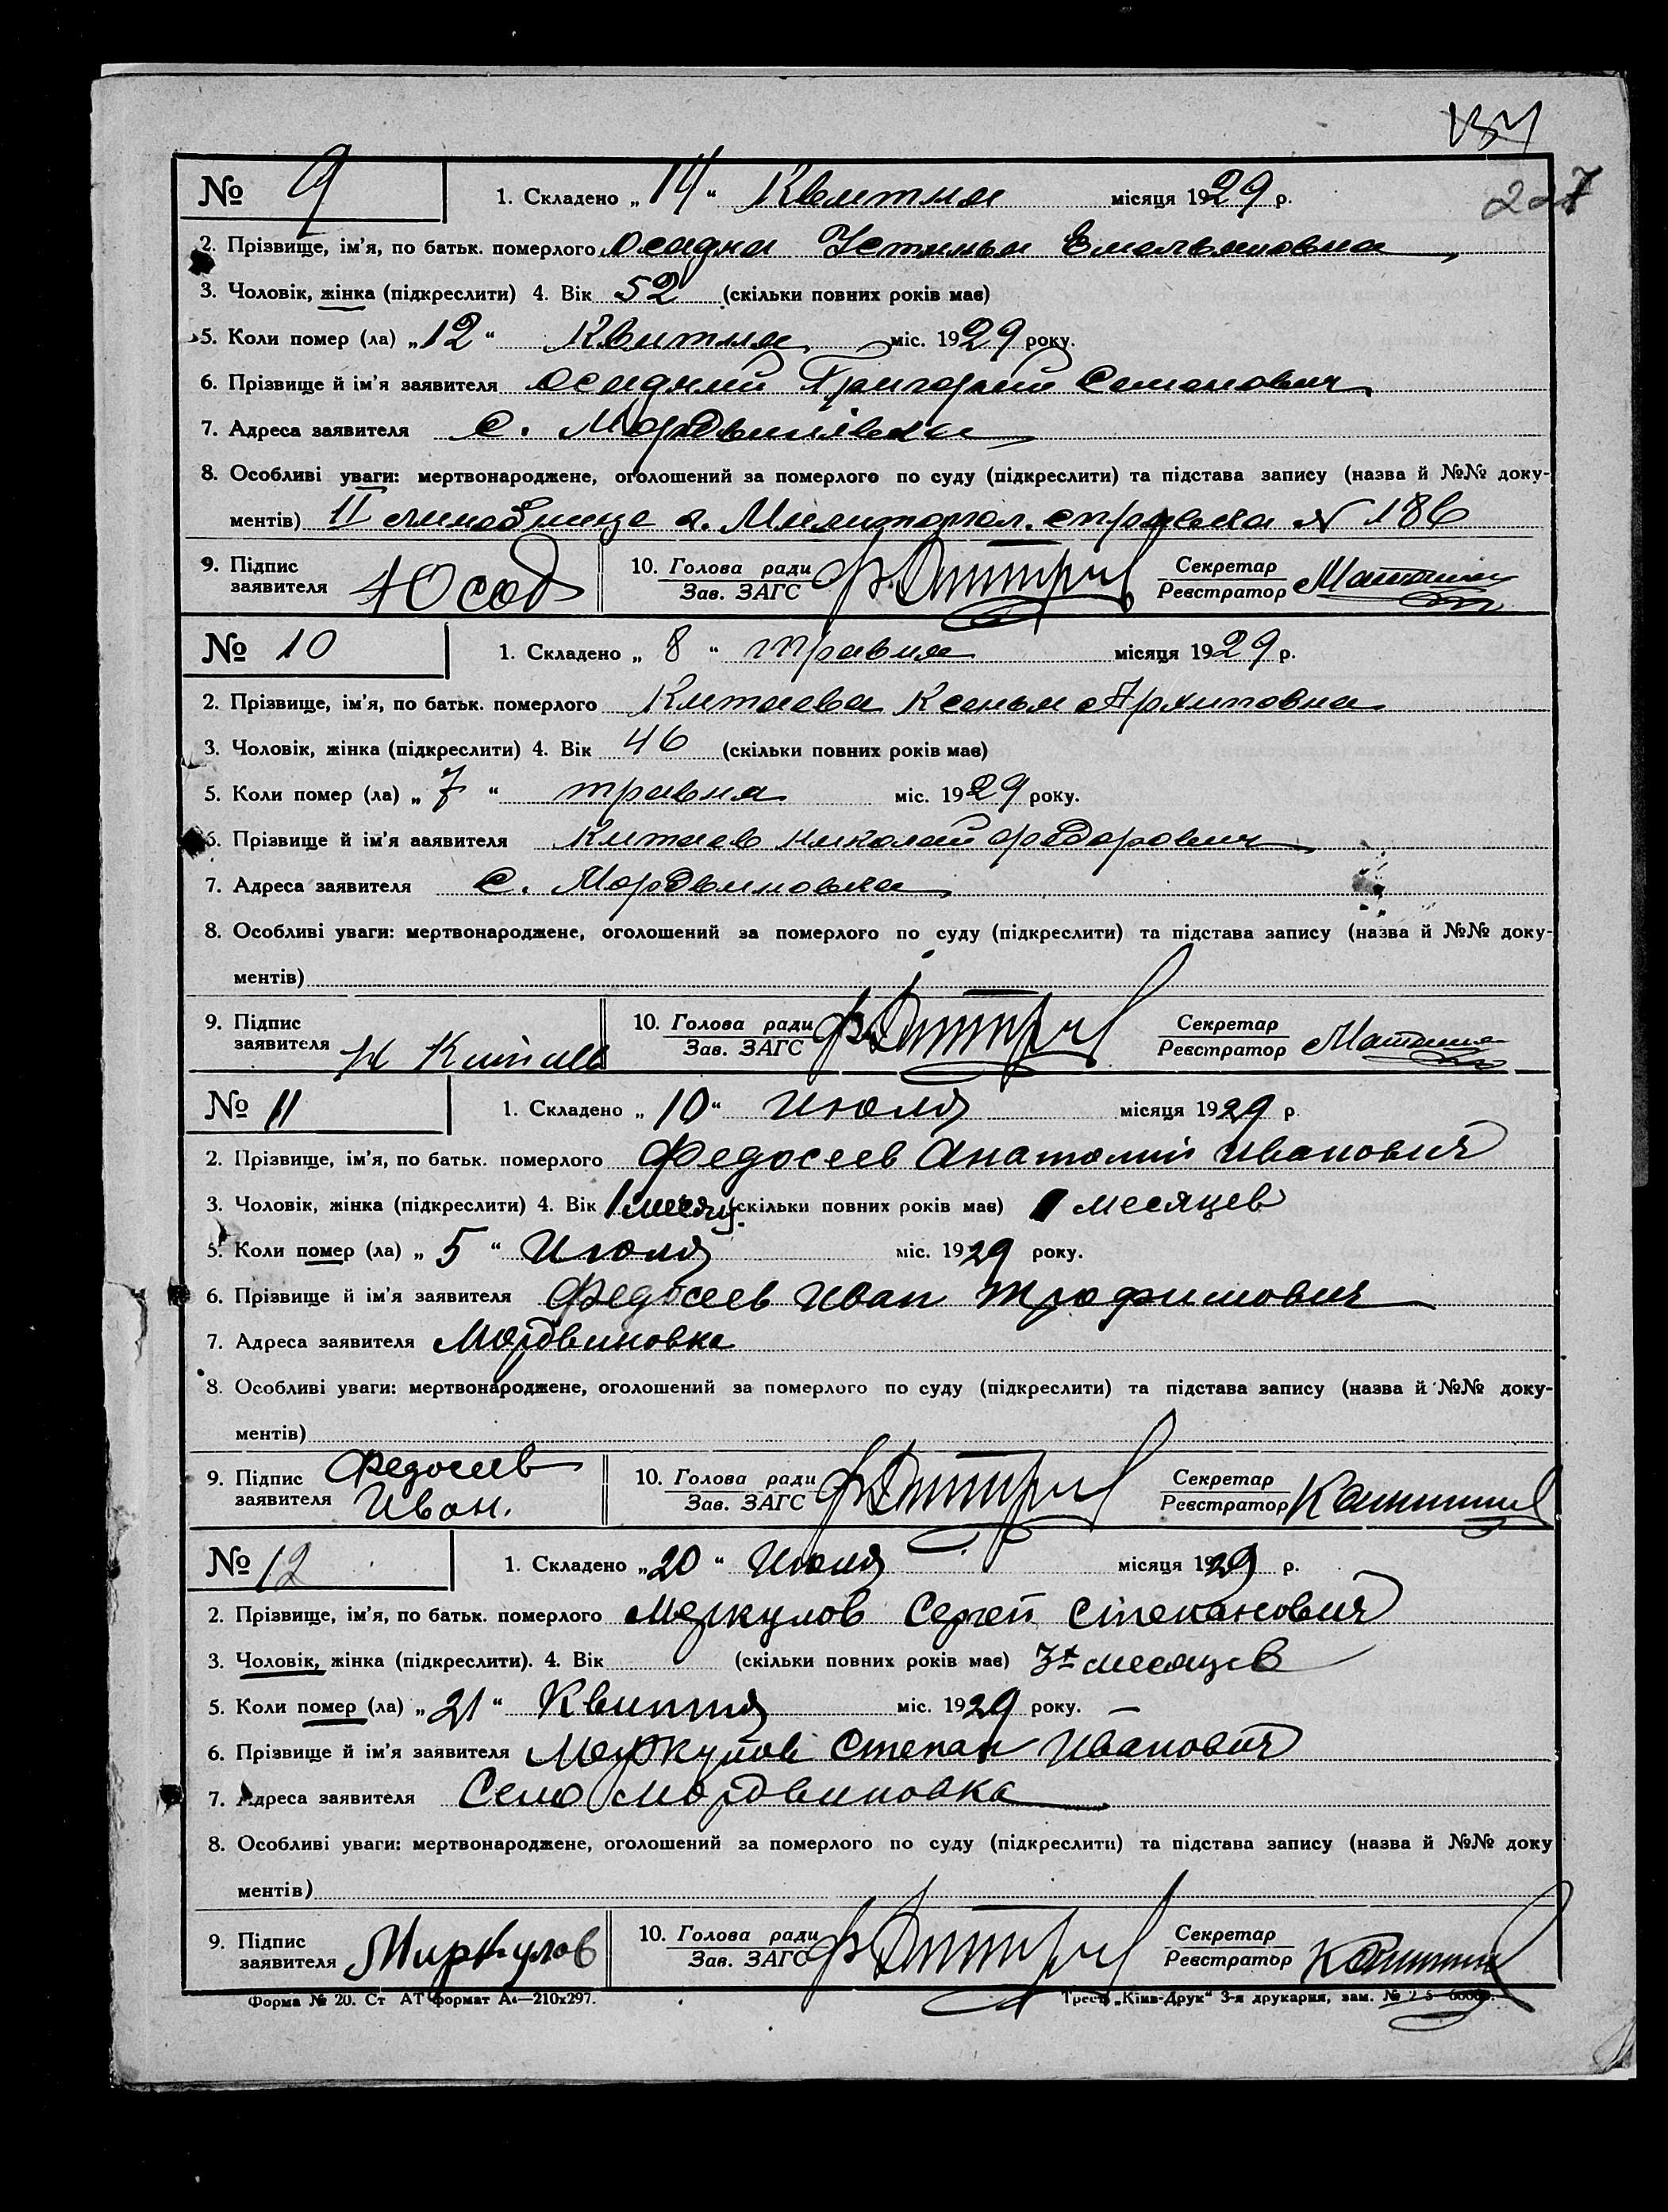 227
№ 9 1. Складено „ 14 “ Квитня місяця 1929 р.
2. Прізвище, ім'я, по батьк. померлого Осадча Устинья Емельяновна
3. Чоловік, жінка (підкреслити) 4. Вік 52 (скільки повних років має)
5. Коли помер (ла) „ 12 “ Квитня міс. 1929 року.
6. Прізвище й ім'я заявителя Осадчий Григорий Семенович
7. Адреса заявителя с. Мордвинівка
8. Особливі уваги: мертвонароджене, оголошений за померлого по суду (підкреслити) та підстава запису (назва й №№ доку-
ментів) II г. справка № 186
9. Підпис заявителя 10. Голова ради Зав. ЗАГС Секретар Реєстратор
№ 10 1. Складено „ 8 “ травня місяця 1929 р.
2. Прізвище, ім'я, по батьк. померлого Китаева Ксенья Архиповна
3. Чоловік, жінка (підкреслити) 4. Вік 46 (скільки повних років має)
5. Коли помер (ла) „ 7 “ травня міс. 1929 року.
6. Прізвище й ім'я заявителя Китаев Николай Федорович
7. Адреса заявителя с. Мордвиновка
8. Особливі уваги: мертвонароджене, оголошений за померлого по суду (підкреслити) та підстава запису (назва й №№ доку-
ментів)
9. Підпис заявителя Н Китаев 10. Голова ради Зав. ЗАГС Секретар Реєстратор
№ 11 1. Складено „ 10 “ Июля місяця 1929 р.
2. Прізвище, ім'я, по батьк. померлого Федосеев Анатолий Иванович
3. Чоловік, жінка (підкреслити) 4. Вік 1 месяц. (скільки повних років має) 1 месяцев
5. Коли помер (ла) „ 5 “ Июля міс. 1929 року.
6. Прізвище й ім'я заявителя Федосеев Иван Трофимович
7. Адреса заявителя Мордвиновка
8. Особливі уваги: мертвонароджене, оголошений за померлого по суду (підкреслити) та підстава запису (назва й №№ доку-
ментів)
9. Підпис заявителя Федосеев Иван. 10. Голова ради Зав. ЗАГС Секретар Реєстратор
№ 12 1. Складено „ 20 “ Июля місяця 1929 р.
2. Прізвище, ім'я, по батьк. померлого Меркулов Сергей Степанович
3. Чоловік, жінка (підкреслити). 4. Вік (скільки повних років має) 3х месяцев
5. Коли помер (ла) „ 21 “ Квиття міс. 1929 року.
6. Прізвище й ім'я заявителя Меркулов Степан Иванович
7. Адреса заявителя Село Мордвиновка
8. Особливі уваги: мертвонароджене, оголошений за померлого по суду (підкреслити) та підстава запису (назва й №№ доку
ментів)
9. Підпис заявителя Миркулов 10. Голова ради Зав. ЗАГС Секретар Реєстратор
Форма № 20. Ст АТ формат А₄—210х297. Трест „Київ-Друк“ 3-я друкарня, зам. №